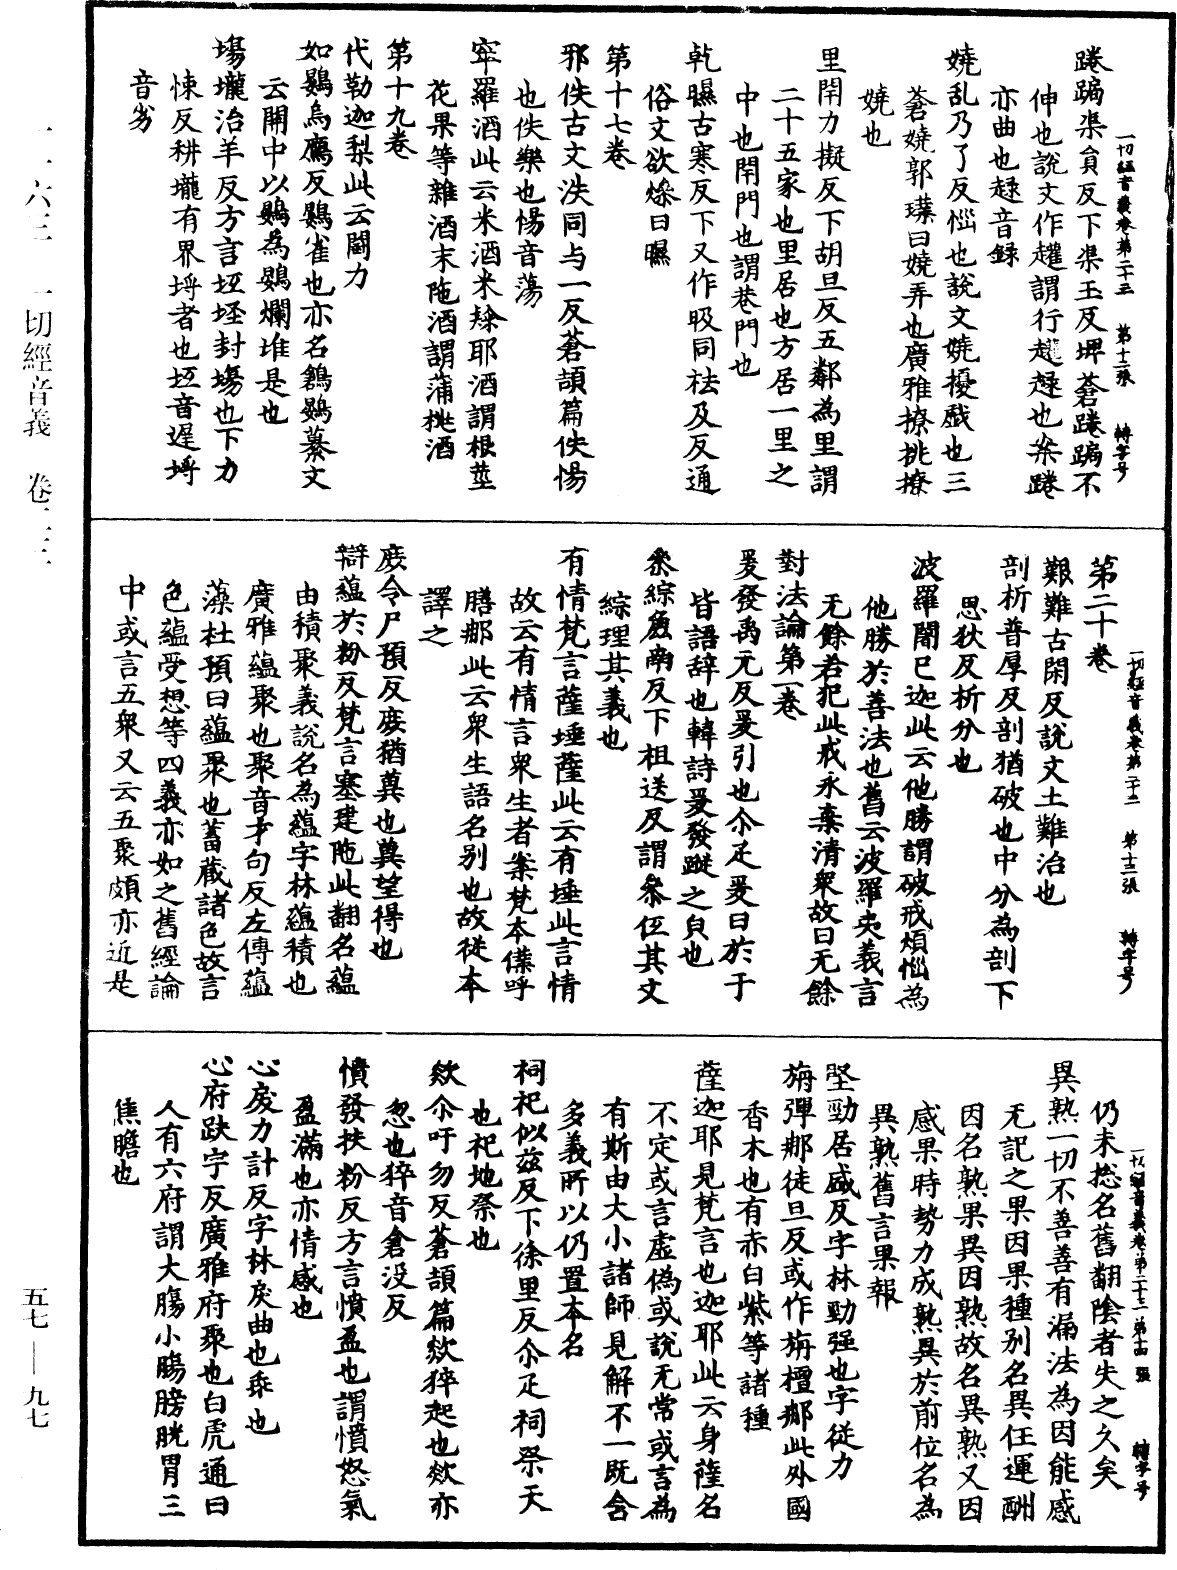 一切經音義卷第二十三　第十二張　轉字号
踡跼渠負反下渠玉反埤蒼踡跼不
伸也說文作趯謂行趯趢也案踡
亦曲也趢音録
嬈乱乃了反惱也說文嬈擾戲也三
蒼嬈郭璞曰嬈弄也廣雅撩挑撩
嬈也
里閈力擬反下胡旦反五鄰為里謂
二十五家也里居也方居一里之
中也閈門也謂巷門也
乹曝古寒反下又作㫺同袪及反通
俗文欲燥曰曝
第十七卷
邪佚古文泆同与一反蒼頡篇佚惕
也佚樂也惕音蕩
窣羅酒此云米酒米䊪耶酒謂根莖
花果等雜酒末陁酒謂蒲桃酒
第十九卷
代勒迦梨此云鬪力
如鷃烏鴈反鷃雀也亦名鶕鷃纂文
云關中以鷃為鷃爛堆是也
塲壠治羊反方言坥坯封塲也下力
悚反耕壠有界埒者也坥音遅埒
音劣
一切經音義卷第二十三　第十三張　轉字号
第二十卷
艱難古閑反說文土難治也
剖析普厚反剖猶破也中分為剖下
思狄反析分也
波羅闍已迦此云他勝謂破戒煩惱為
他勝於善法也舊云波羅夷義言
无餘若犯此戒永棄清衆故曰无餘
對法論第一卷
爰發禹元反爰引也尒疋爰曰於于
皆語辞也韓詩爰發蹤之㒵也
㕘綜麁南反下祖送反謂㕘伍其文
綜理其義也
有情梵言薩埵薩此云有埵此言情
故云有情言衆生者案梵本僕呼
膳那此云衆生語名別也故從本
譯之
庻令尸預反庻猶兾也兾望得也
辯蘊於粉反梵言塞建陁此翻名蘊
由積聚義說名為蘊字林蘊積也
廣雅蘊聚也聚音才句反左傳蘊
藻杜預曰蘊聚也蓄藏諸色故言
色蘊受想等四義亦如之舊經論
中或言五衆又云五聚頗亦近是
一切經音義卷第二十三　第十四張　轉字号
仍未捴名舊翻陰者失之久矣
異熟一切不善善有漏法為因能感
无記之果因果種別名異任運酬
因名熟果異因熟故名異熟又因
感果時勢力成熟異於前位名為
異熟舊言果報
堅勁居盛反字林勁强也字從力
栴彈那徒旦反或作栴檀那此外國
香木也有赤白紫等諸種
薩迦耶見梵言也迦耶此云身薩名
不定或言虛偽或說无常或言為
有斯由大小諸師見解不一既含
多義所以仍置本名
祠祀似兹反下徐里反尒疋祠祭天
也祀地祭也
欻尒吁勿反蒼頡篇欻猝起也欻亦
忽也猝音倉没反
憤發扶粉反方言憤盈也謂憤怒氣
盈滿也亦情感也
心戾力計反字林戾曲也乖也
心府趺宇反廣雅府聚也白虎通曰
人有六府謂大膓小膓膀胱胃三
焦膽也
一一六三　一切經音義　卷二三
五七—九七